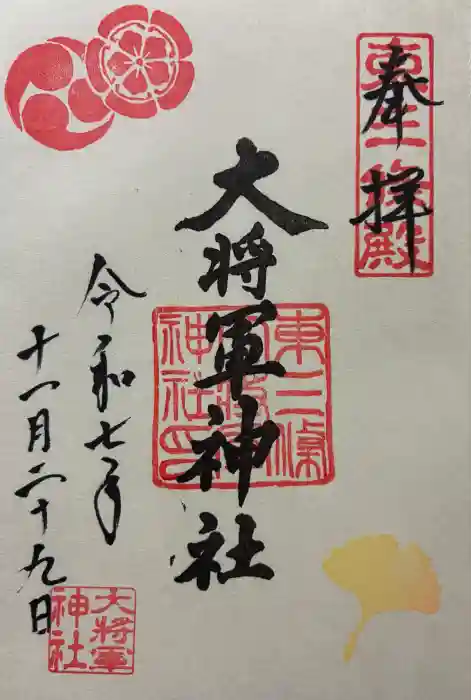 奉拝
東三條殿
大将軍神社
東三條
大将軍
神社印
令和七年
十一月二十九日
大将軍
神社